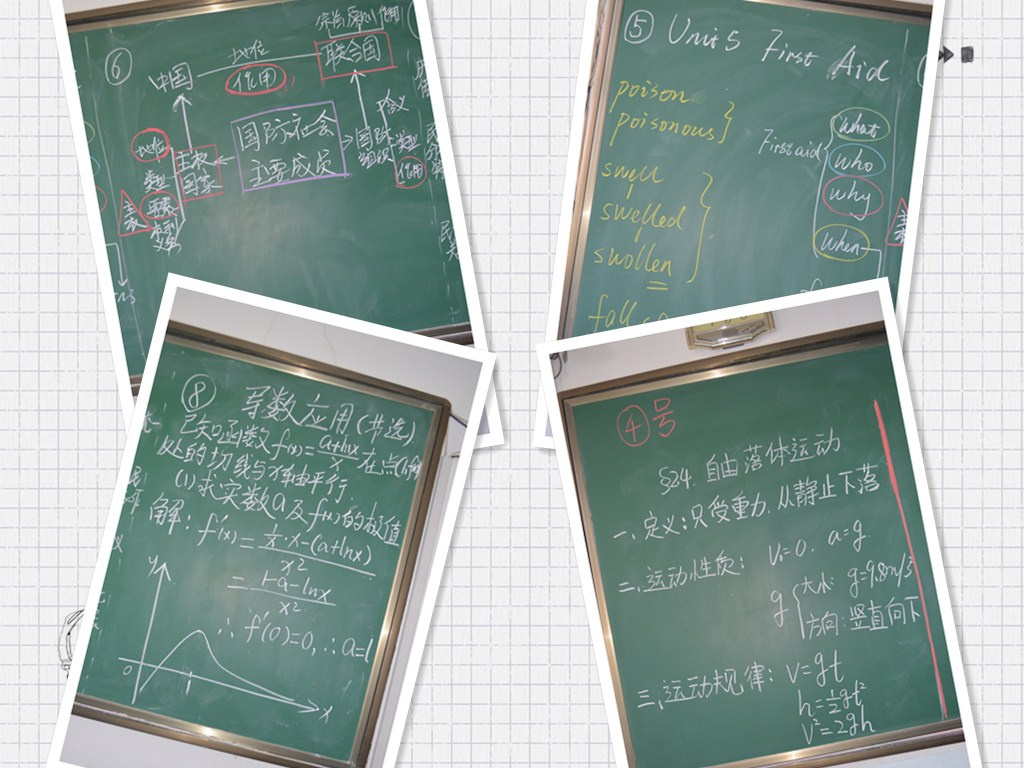 ⑥
宪法原则 作用
中国 地位 联合国
作用
国际社会
主要成员
地位
主权
国家
类型
含义
国际
组织
类型
作用
⑤ Unit 5 First Aid
poison
poisonous
swell
swelled
swollen
fall
First aid
what
who
why
when
⑧ 导数应用(井选)
已知函数f(x)=(a+lnx)/x 在点(1,f(1))
处的切线与x轴平行.
(1)求实数a及f(x)的极值
解: f'(x)=(1/x·x-(a+lnx))/x²
=(1-a-lnx)/x²
∴f'(0)=0,∴a=1
y
0 1 x
④号
§2.4. 自由落体运动
一、定义:只受重力.从静止下落
二、运动性质: v=0. a=g
g 大小: g=9.8m/s²
方向: 竖直向下
三、运动规律: v=gt
h=½gt²
v²=2gh